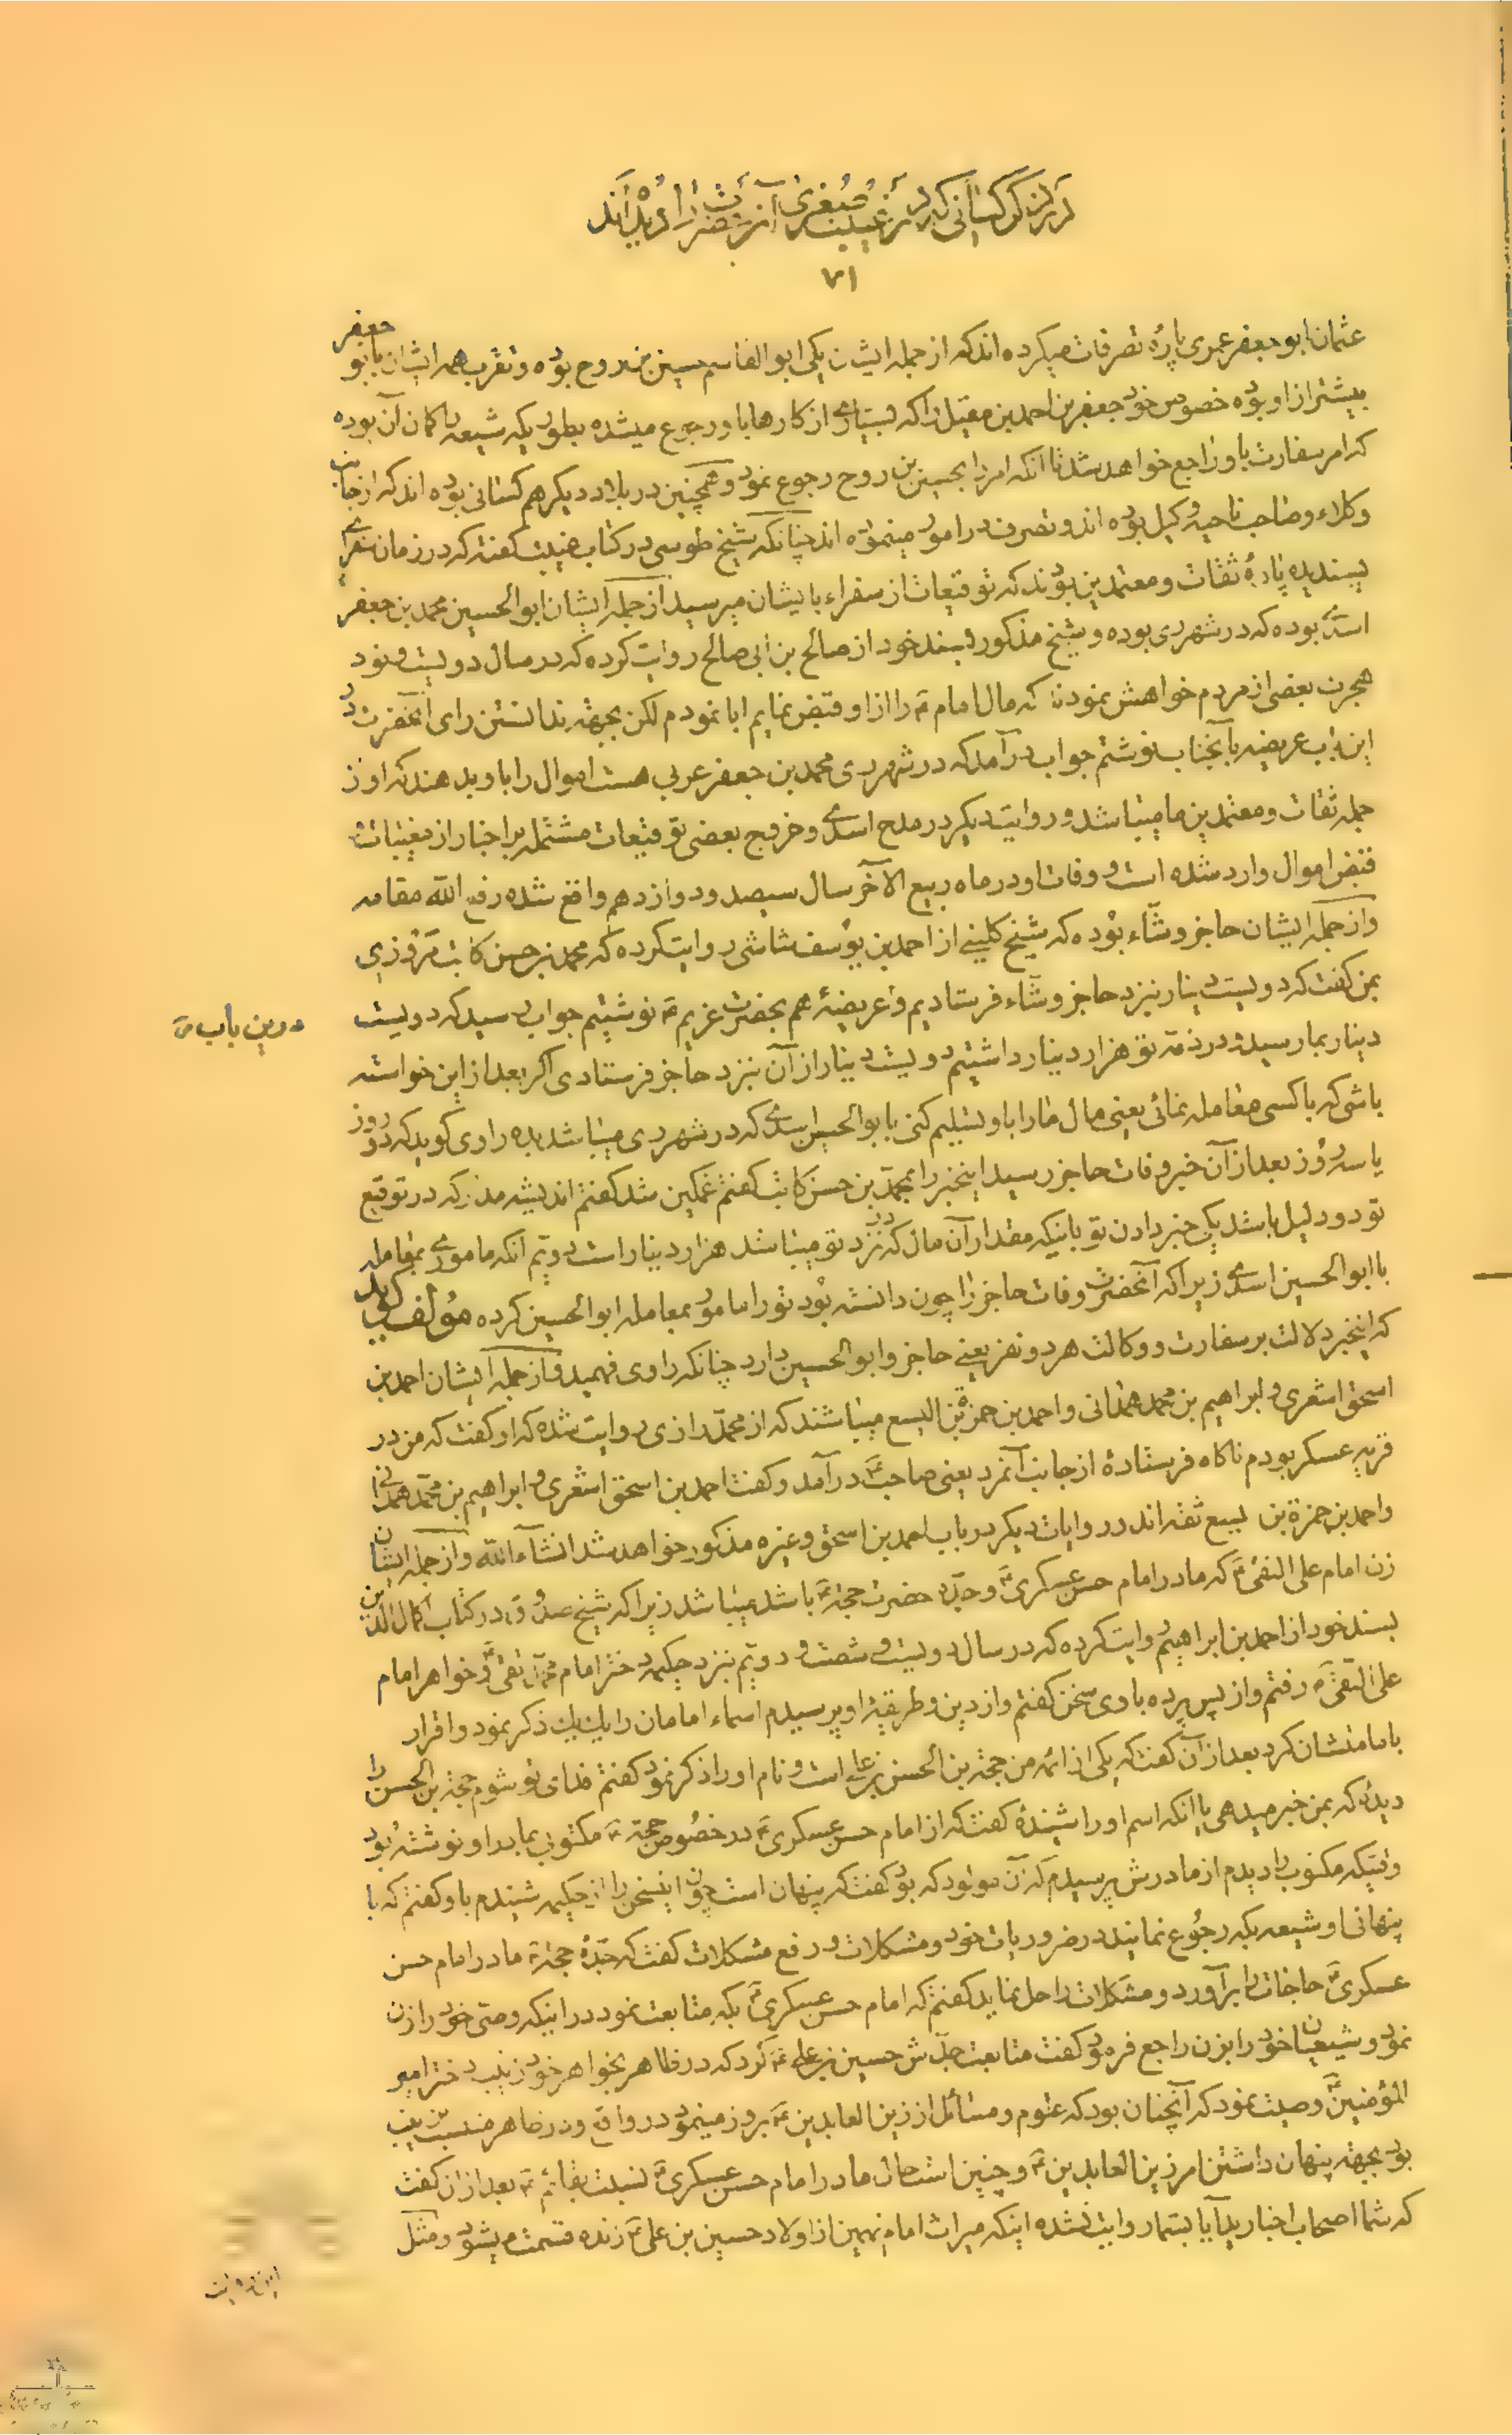 در ذکر کسانی که در غیبت صغری آنحضرت را دیده‌اند
۷۱
عثمان ابو جعفر عمری پارهٔ تصرفات میکرده اند که از جمله ایشان یکی ابو القاسم حسین بن روح بوده و تقرب همه ایشان بابو جعفر
بیشتر از او بوده خصوص خود جعفر بن احمد بن متیل را که بسیاری از کارها باو رجوع میشده بطوریکه شیعه را کمان آن بوده
که امر سفارت باو راجع خواهد شد تا آنکه امر را بحسین بن روح رجوع نمود و همچنین در بلاد دیکر هم کسانی بوده اند که از جانب
وکلاء و صاحب ناحیه وکیل بوده اند و تصرف در امور مینموده اند چنانکه شیخ طوسی در کتاب غیبت کفته که در زمان سفرای
پسندیده پارهٔ ثقات و معتمدین بودند که توقیعات از سفراء بایشان میرسید از جمله ایشان ابو الحسین محمد بن جعفر
اسدی بوده که در شهر ری بوده و شیخ مذکور بسند خود از صالح بن ابی صالح روایت کرده که در سال دویست و نود
هجرت بعضی از مردم خواهش نمودند که مال امام ع را از او قبض نمایم ابا نمودم لکن بجهته ندانستن رای آنحضرت در
این باب عریضه بآنجناب نوشتم جواب درآمد که در شهر ری محمد بن جعفر عربی هست اموال را باو بدهند که او از
جمله ثقات و معتمدین ما میباشد و روایت دیکر در مدح اسدی و خروج بعضی توقیعات مشتمل بر اخبار از مغیبات و
قبض اموال وارد شده است و وفات او در ماه ربیع الآخر سال سیصد و دوازدهم واقع شده رفع الله مقامه
و از جمله ایشان حاجز وشّاء بوده که شیخ کلینی از احمد بن یوسف شاشی روایت کرده که محمد بن حسن کاتب مروزی
بمن کفت که دویست دینار بنزد حاجز وشّاء فرستادیم و عریضهٔ هم بحضرت غریم ع نوشتیم جواب رسید که دویست
درین باب
دینار بما رسید و در ذمّه تو هزار دینار داشتیم دویست دینار از آن بنزد حاجز فرستادی اکر بعد از این خواسته
باشی که با کسی معامله نمائی یعنی مال ما را باو تسلیم کنی بابو الحسین اسدی که در شهر ری میباشد بده راوی کوید که دو روز
یا سه روز بعد از آن خبر وفات حاجز رسید اینخبر را بمحمد بن حسن کاتب کفتم غمکین شد کفتم اندیشه مدار که در توقیع
تو دو دلیل باشد یکی خبر دادن تو باینکه مقدار آن مال که در نزد تو میباشد هزار دینار است دویّم آنکه ماموری بمعامله
با ابو الحسین اسدی زیرا که آنحضرت وفات حاجز را چون دانسته بود تو را مامور بمعامله ابو الحسین کرده مؤلف کوید
که اینخبر دلالت بر سفارت و وکالت هر دو نفر یعنی حاجز و ابو الحسین دارد چنانکه راوی فهمید و از جمله ایشان احمد بن
اسحق اشعری و ابراهیم بن محمد همدانی و احمد بن حمزة بن الیسع میباشند که از محمّد رازی روایت شده که او کفت که من در
قریه عسکر بودم ناکاه فرستادهٔ از جانب آنمرد یعنی صاحب ع درآمد و کفت احمد بن اسحق اشعری و ابراهیم بن محمّد همدانی
و احمد بن حمزة بن لیسع ثقه اند و روایات دیکر در باب احمد بن اسحق و غیره مذکور خواهد شد انشآء الله و از جمله ایشان
زن امام علی النقی ع که مادر امام حسن عسکری ع و جدّه حضرت حجّة ع باشد میباشد زیرا که شیخ صدوق در کتاب اکمال الدین
بسند خود از احمد بن ابراهیم روایت کرده که در سال دویست و شصت و دویّم بنزد حکیمه دختر امام محمّد تقی ع و خواهر امام
علی النّقی ع رفتم و از پس پرده با وی سخن کفتم و از دین و طریقهٔ او پرسیدم اسماء امامان را یك یك ذکر نمود و اقرار
بامامتشان کرد بعد از آن کفت که یکی از ائمه من حجة بن الحسن بن علی است و نام او را ذکر نمود کفتم فدای تو شوم حجة بن الحسن را
دیدهٔ که بمن خبر میدهی یا آنکه اسم او را شنیدهٔ کفت که از امام حسن عسکری ع در خصوص حجّة ع مکتوبی بمادر او نوشته بود
وقتیکه مکتوب را دیدم از مادرش پرسیدم که آن مولود که بود کفت که پنهان است چون اینسخن را از حکیمه شنیدم باو کفتم که با
پنهانی او شیعه بکه رجوع نمایند در ضروریات خود و مشکلات و رفع مشکلات کفت که جدّهٔ حجّة ع مادر امام حسن
عسکری ع حاجات را برآورد و مشکلات را حل نماید کفتم که امام حسن عسکری ع بکه متابعت نمود در اینکه وصی خود را زن
نمود و شیعیان خود را بزن راجع فرمود کفت متابعت جدّش حسین بن علی ع کرد که در ظاهر بخواهر خود زینب دختر امیر
المؤمنین ع وصیت نمود که آنچنان بود که علوم و مسائل از زین العابدین ع بروز مینمود در واقع و در ظاهر منسب بزینب
بود بجهته پنهان داشتن امر زین العابدین ع و چنین است حال مادر امام حسن عسکری ع نسبت بقائم ع بعد از آن کفت
که شما اصحاب اخبارید آیا بشما روایت نشده اینکه میراث امام نهمین از اولاد حسین بن علی ع زنده قسمت میشود و مثل
این روایت